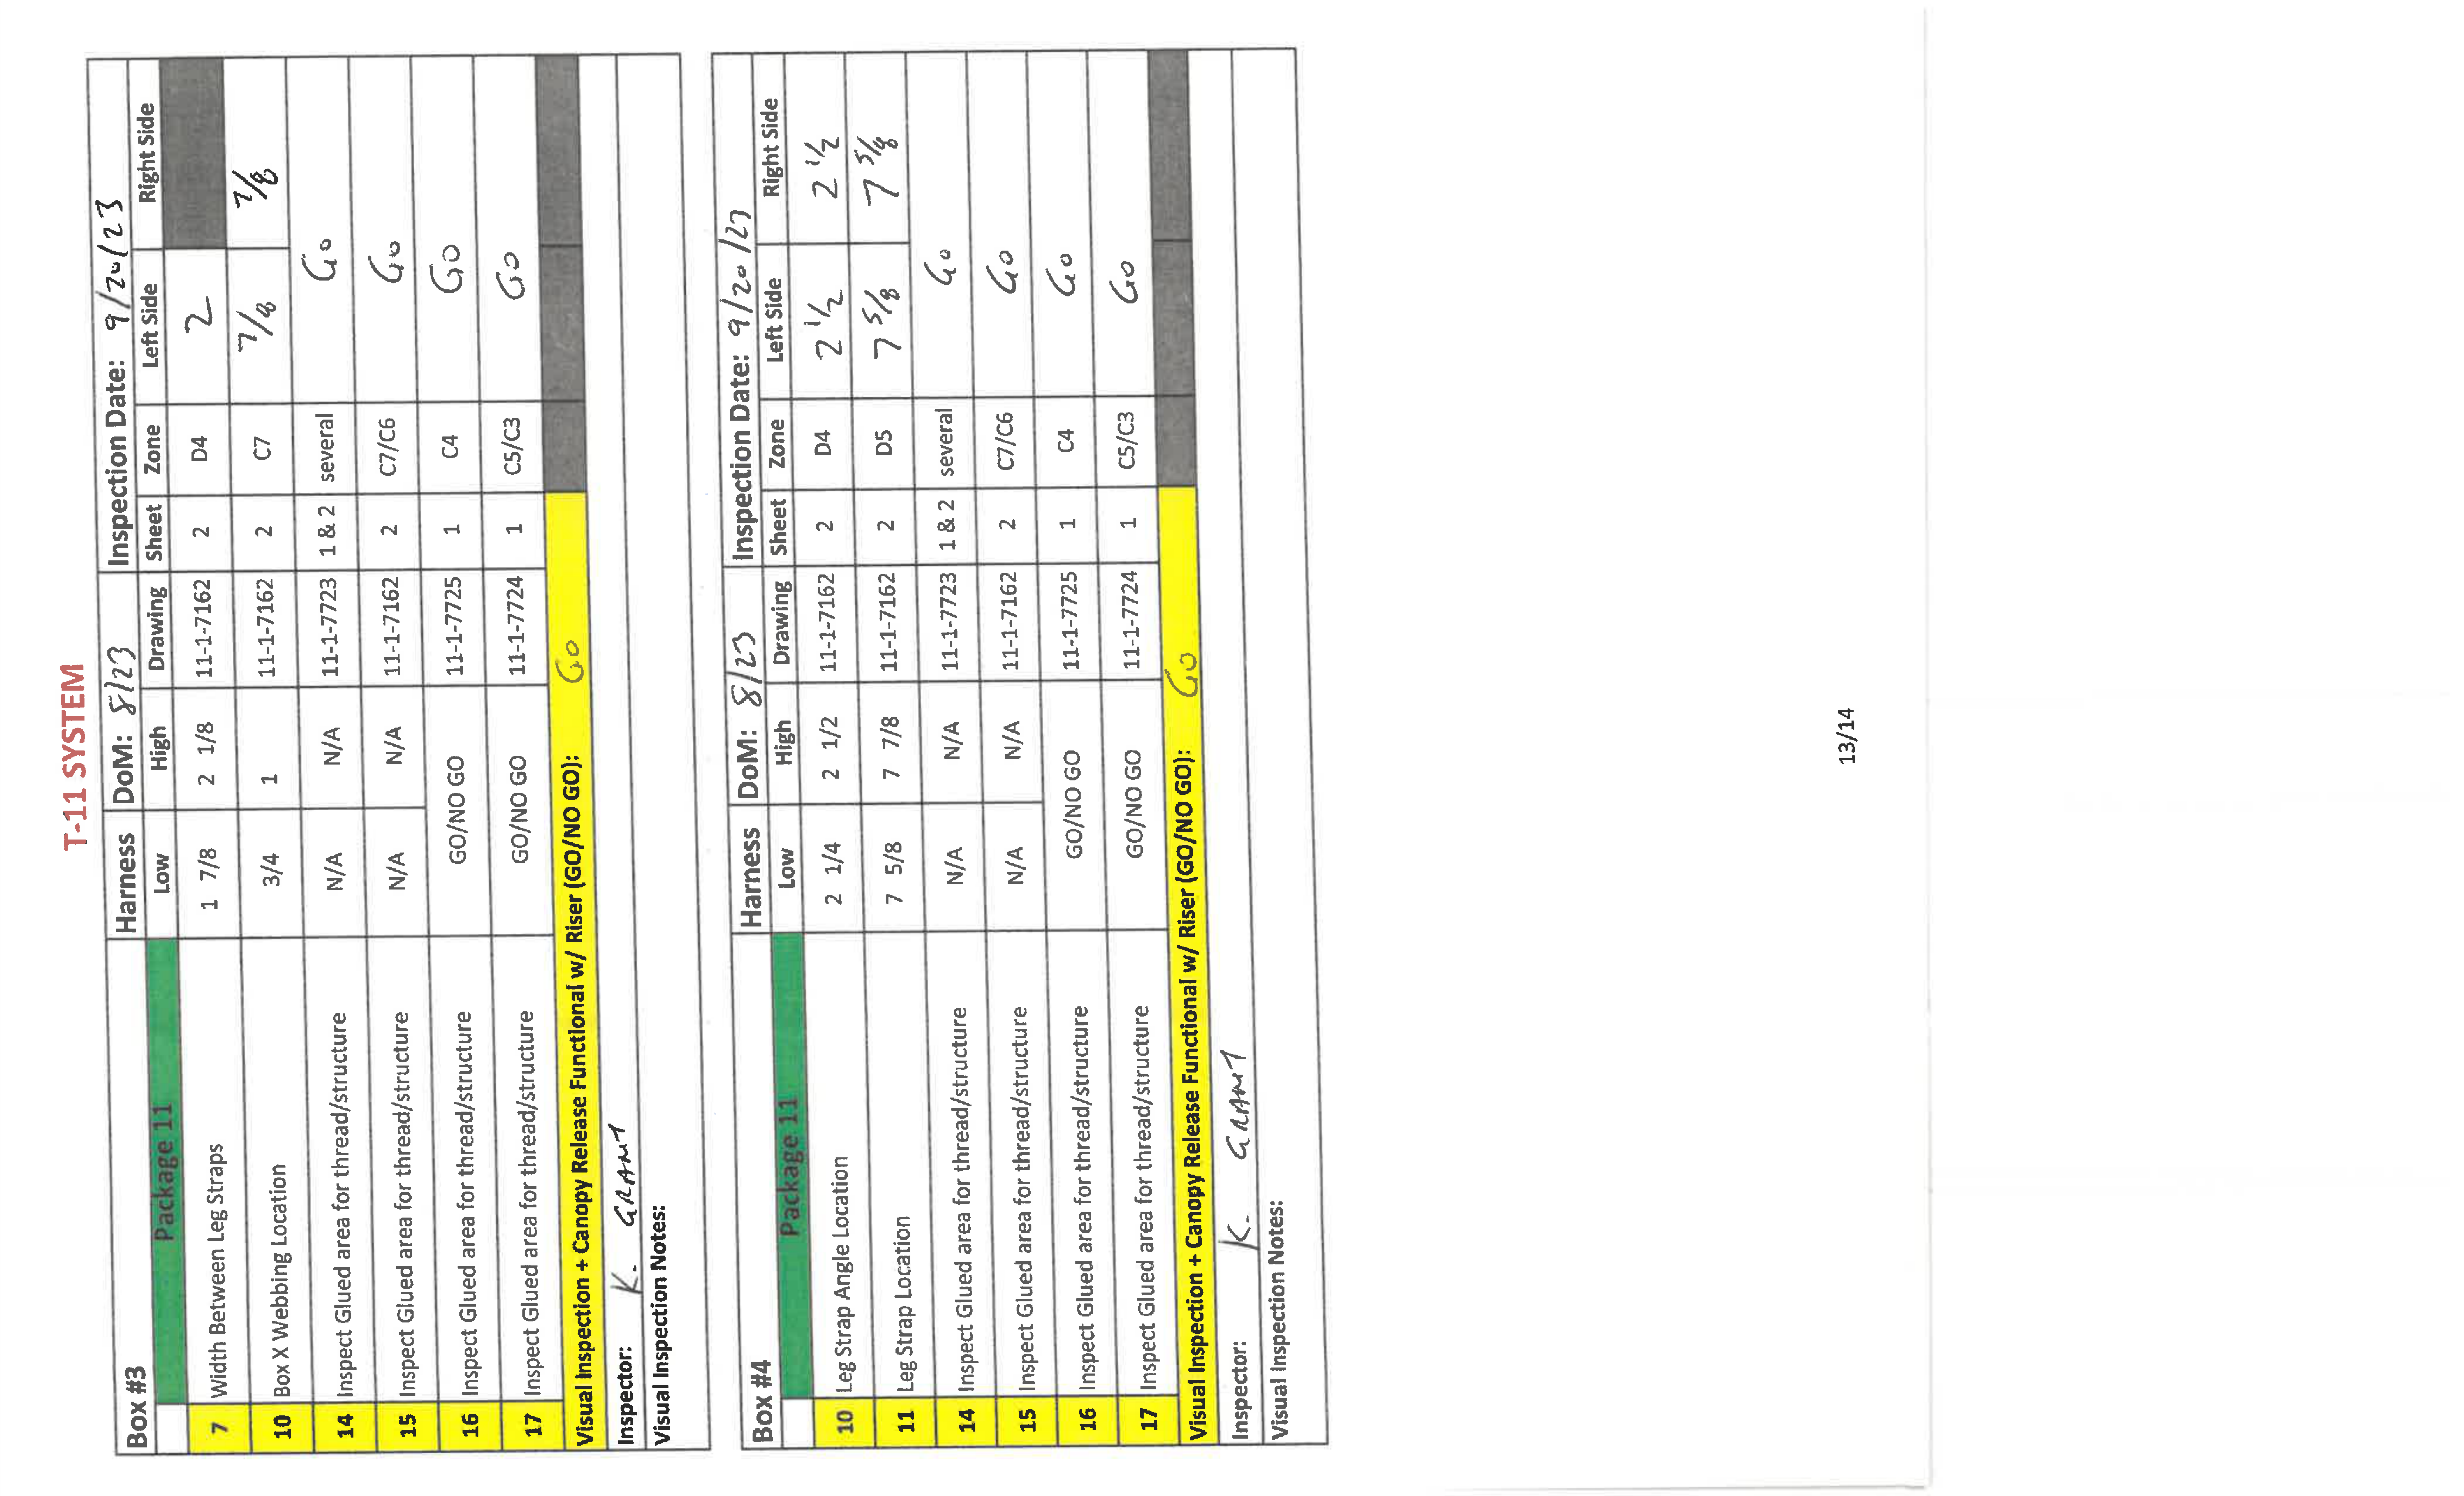 T-11 SYSTEM
Box #3 Harness DoM: 8/23 Inspection Date: 9/20/23
Package 11 Low High Drawing Sheet Zone Left Side Right Side
7 Width Between Leg Straps 1 7/8 2 1/8 11-1-7162 2 D4 2
10 Box X Webbing Location 3/4 1 11-1-7162 2 C7 7/8 7/8
14 Inspect Glued area for thread/structure N/A N/A 11-1-7723 1 & 2 several Go
15 Inspect Glued area for thread/structure N/A N/A 11-1-7162 2 C7/C6 Go
16 Inspect Glued area for thread/structure GO/NO GO 11-1-7725 1 C4 GO
17 Inspect Glued area for thread/structure GO/NO GO 11-1-7724 1 C5/C3 GO
Visual Inspection + Canopy Release Functional w/ Riser (GO/NO GO): Go
Inspector: K. GRANT
Visual Inspection Notes:
Box #4 Harness DoM: 8/23 Inspection Date: 9/20/23
Package 11 Low High Drawing Sheet Zone Left Side Right Side
10 Leg Strap Angle Location 2 1/4 2 1/2 11-1-7162 2 D4 2 1/2 2 1/2
11 Leg Strap Location 7 5/8 7 7/8 11-1-7162 2 D5 7 5/8 7 5/8
14 Inspect Glued area for thread/structure N/A N/A 11-1-7723 1 & 2 several Go
15 Inspect Glued area for thread/structure N/A N/A 11-1-7162 2 C7/C6 Go
16 Inspect Glued area for thread/structure GO/NO GO 11-1-7725 1 C4 Go
17 Inspect Glued area for thread/structure GO/NO GO 11-1-7724 1 C5/C3 Go
Visual Inspection + Canopy Release Functional w/ Riser (GO/NO GO): Go
Inspector: K. GRANT
Visual Inspection Notes:
13/14